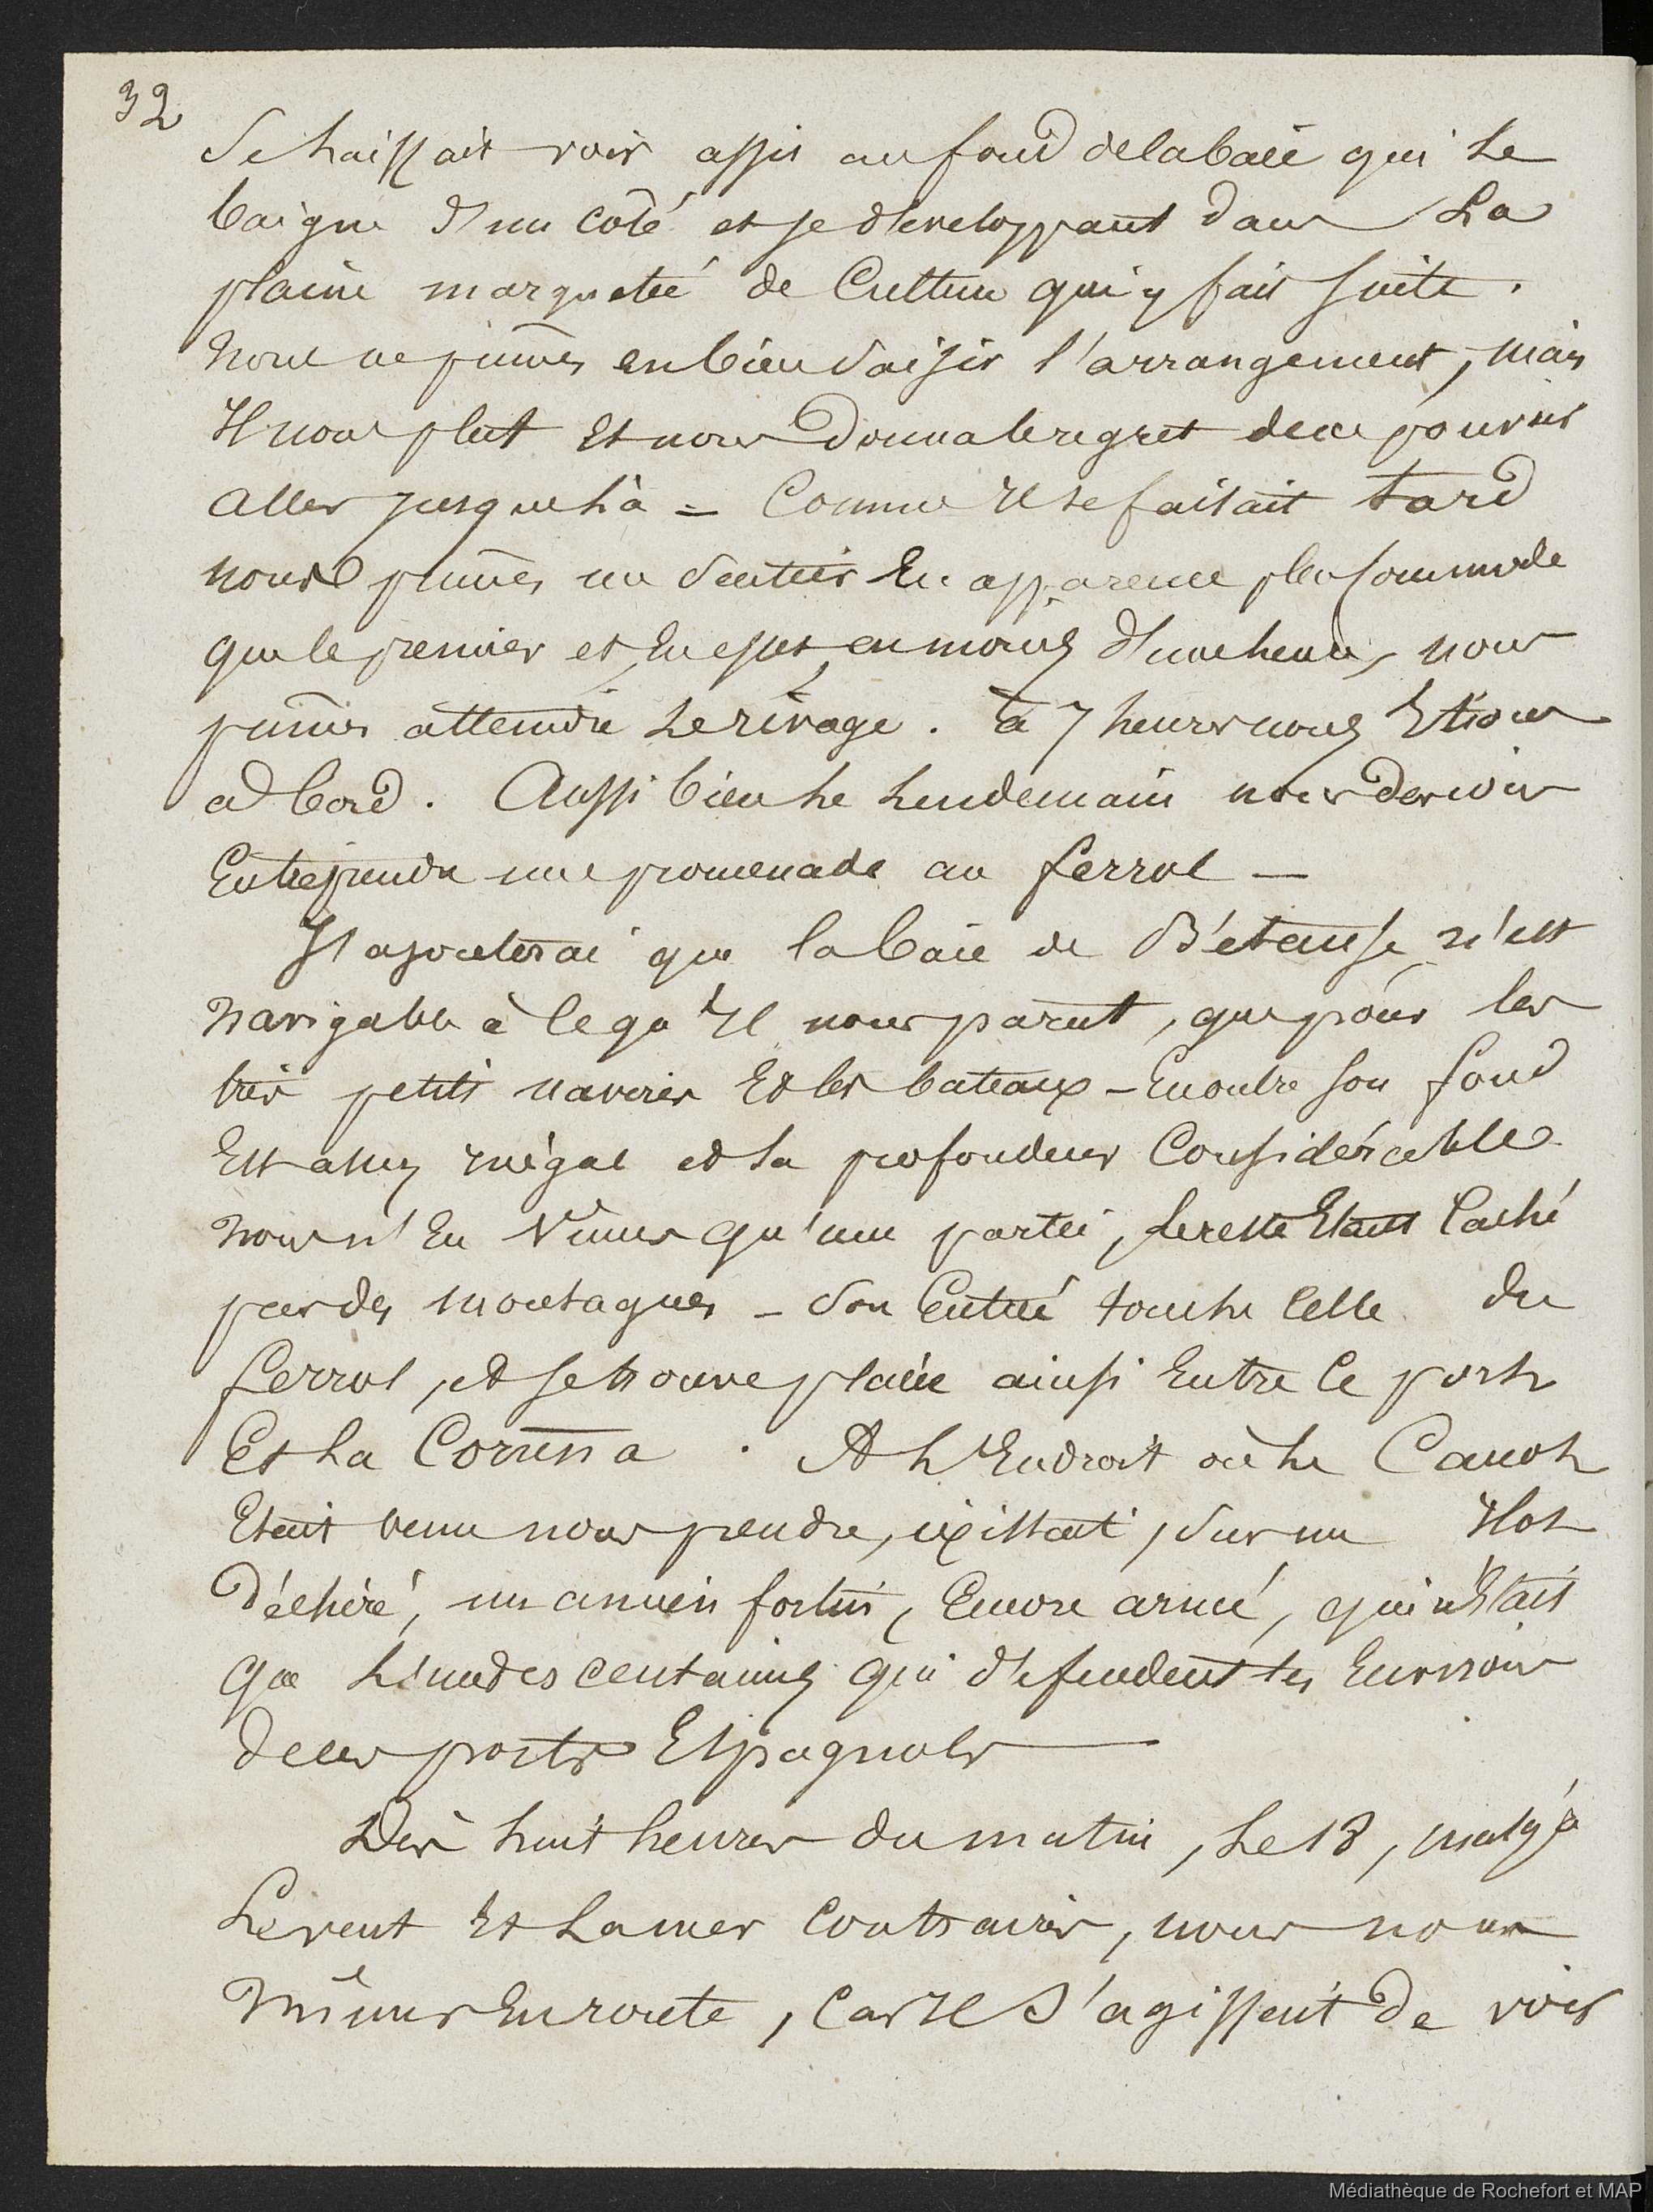 32
Se laissait voir assis au fond de la baie qui le
baigne d'un coté et se développant dans la
plaine marquetée de Culture qui y fait suite.
Nous ne pûmes en bien saisir l'arrangement, mais
Il nous plut Et nous donna le regret de ne pouvoir
aller jusque là = Comme Il se faisait tard
nous prîmes un sentier En apparence plus commode
que le premier et, En effet, en moins d'une heure, nous
pûmes atteindre le rivage. à 7 heures nous Etions
à bord. Aussi bien le lendemain nous devions
Entreprendre une promenade au ferrol —
J'ajouterai que la baie de Bétanse n'est
navigable à ce qu'Il nous parut, que pour les
très petits navires Et les bateaux – En outre son fond
Est assez inégal et sa profondeur Considérable
Nous n'En Vîmes qu'une partie, le reste Etant Caché
par des montagnes – Son Entrée touche celle du
ferrol, et se trouve placée ainsi Entre ce port
Et la Coruna. A l'Endroit où le Canot
Etait venu nous prendre, existait, sur un Ilot
déchiré, un ancien fortin, Encore armé, qui n'Etait
que l'un des centaines qui défendent les Environs
de ces ports Espagnols —
Dès huit heures du matin, le 18, malgré
Le vent Et la mer Contraires, nous nous
mîmes En route, Car Il s'agissait de voir
Médiathèque de Rochefort et MAP